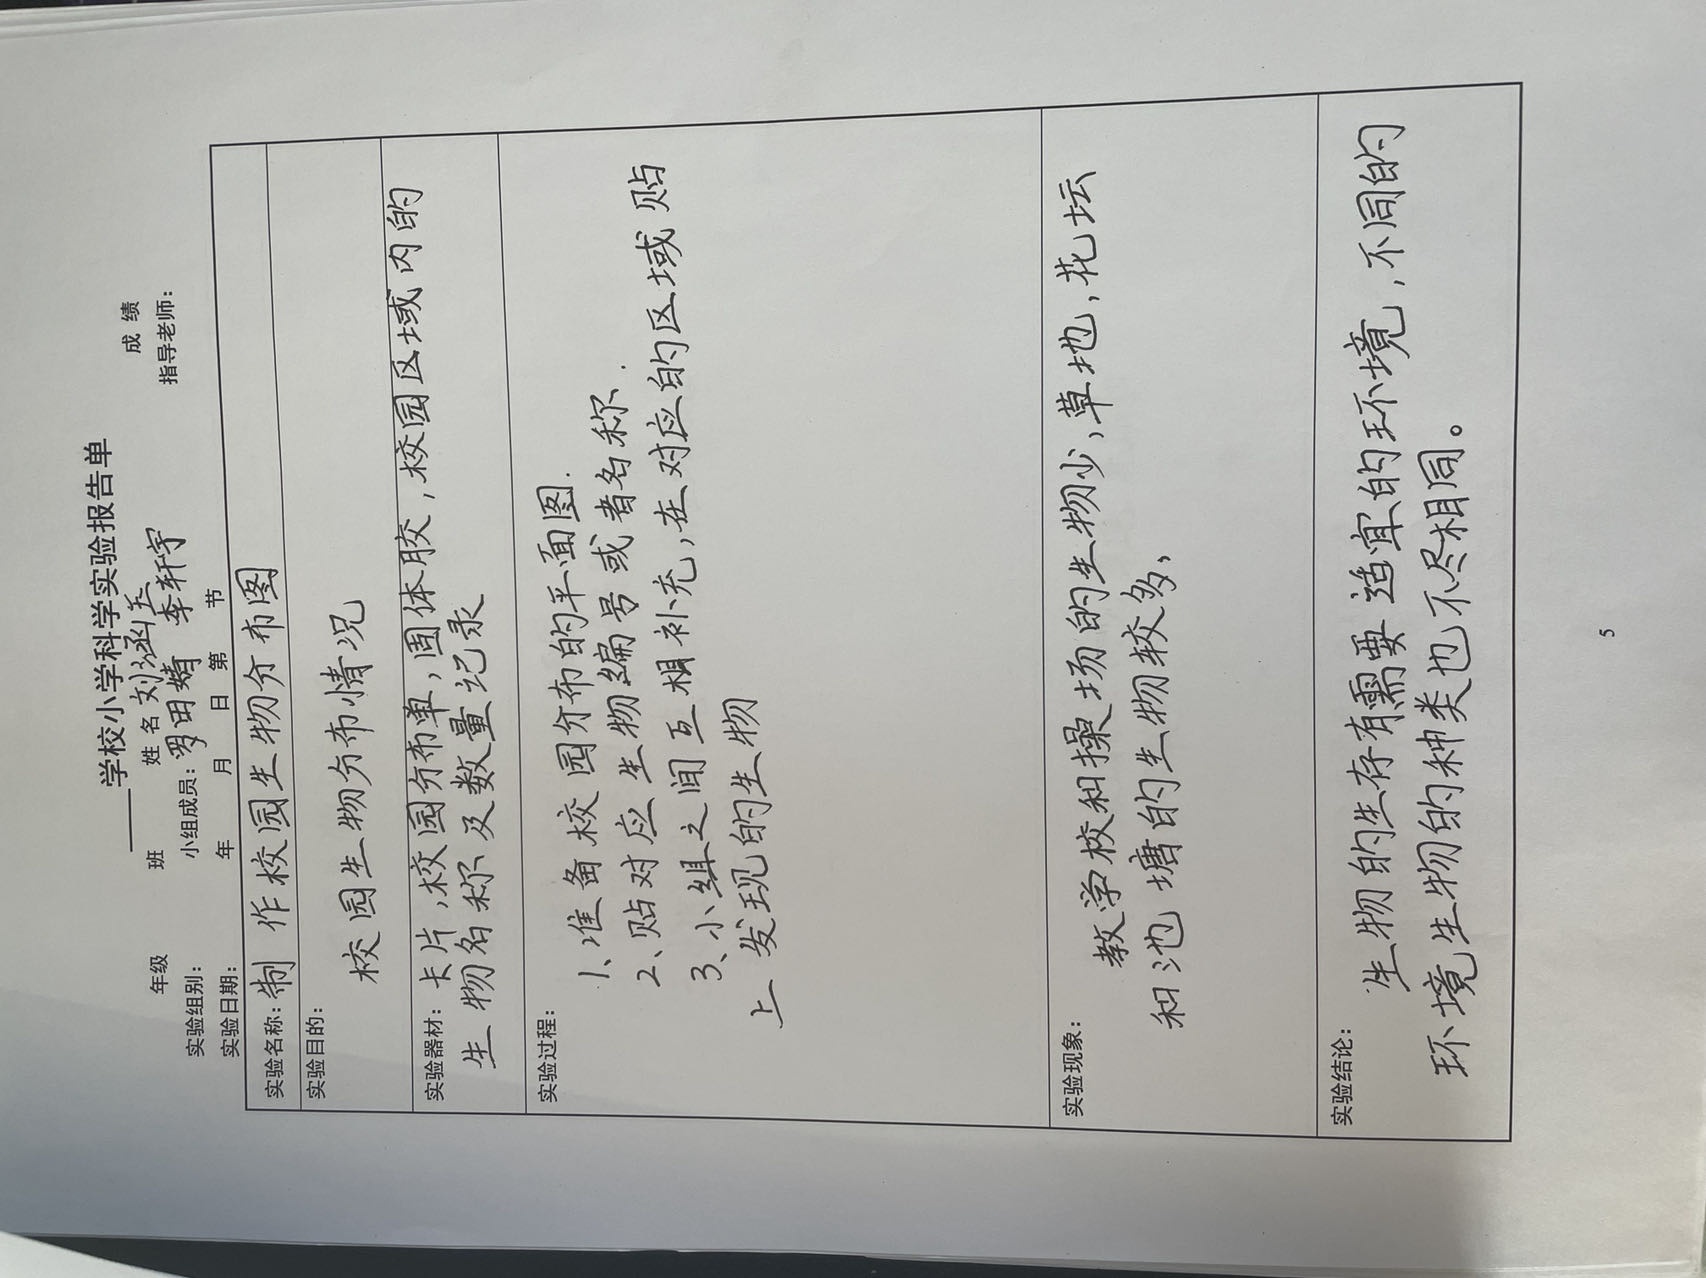 学校小学科学实验报告单
年级 班 姓名 刘涵 成绩
实验组别： 小组成员：罗田婧 李轩宇 指导老师：
实验日期： 年 月 日 第 节
实验名称：制作校园生物分布图
实验目的：
校园生物分布情况
实验器材：卡片，校园分布单，固体胶，校园区域内的
生物名称及数量记录
实验过程：
1、准备校园分布的平面图.
2、贴对应生物编号或者名称.
3、小组之间互相补充，在对应的区域贴
上发现的生物
实验现象：
教学校和操场的生物少，草地，花坛
和池塘的生物较多，
实验结论：
生物的生存有需要适宜的环境，不同的
环境生物的种类也不尽相同。
5